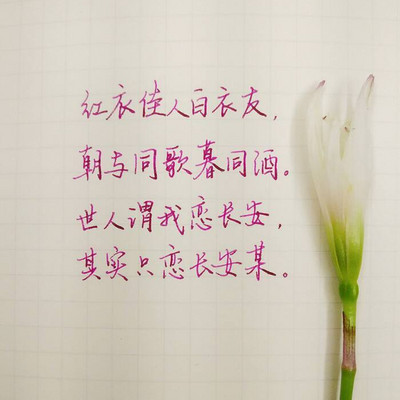 红衣佳人白衣友，
朝与同歌暮同酒。
世人谓我恋长安，
其实只恋长安某。